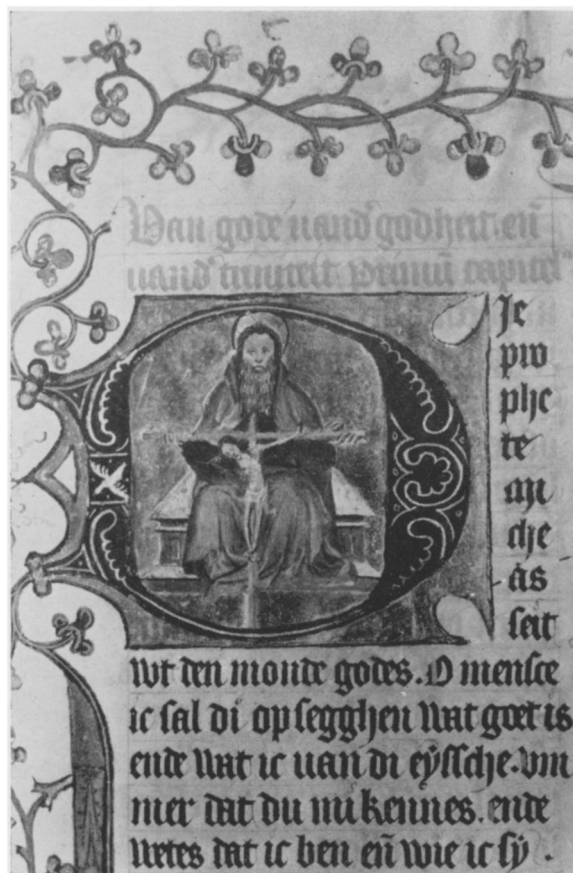 Van gode uand' godheit. en̄
uand' triniteit Primū capitel'
Je
pro
phe
te
My
che
as
seit
wt den monde godes. O mensce
ic sal di op segghen wat goet is
ende wat ic uan di eyssche. vm
mer dat du mi kennes. ende
wetes dat ic ben en̄ wie ic sy.